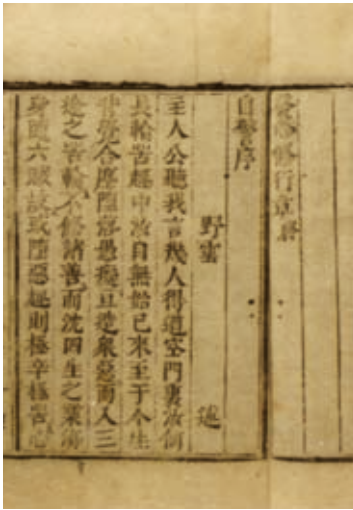 發心修行章畢
自警序
野雲 述
主人公聽我言幾人得道空門裏汝何
長輪苦趣中汝自無始已來至于今生
背覺合塵墮落愚癡恒造衆惡而入三
途之苦輪不修諸善而沈四生之業海
身隨六賊故或墮惡趣則極辛極苦心